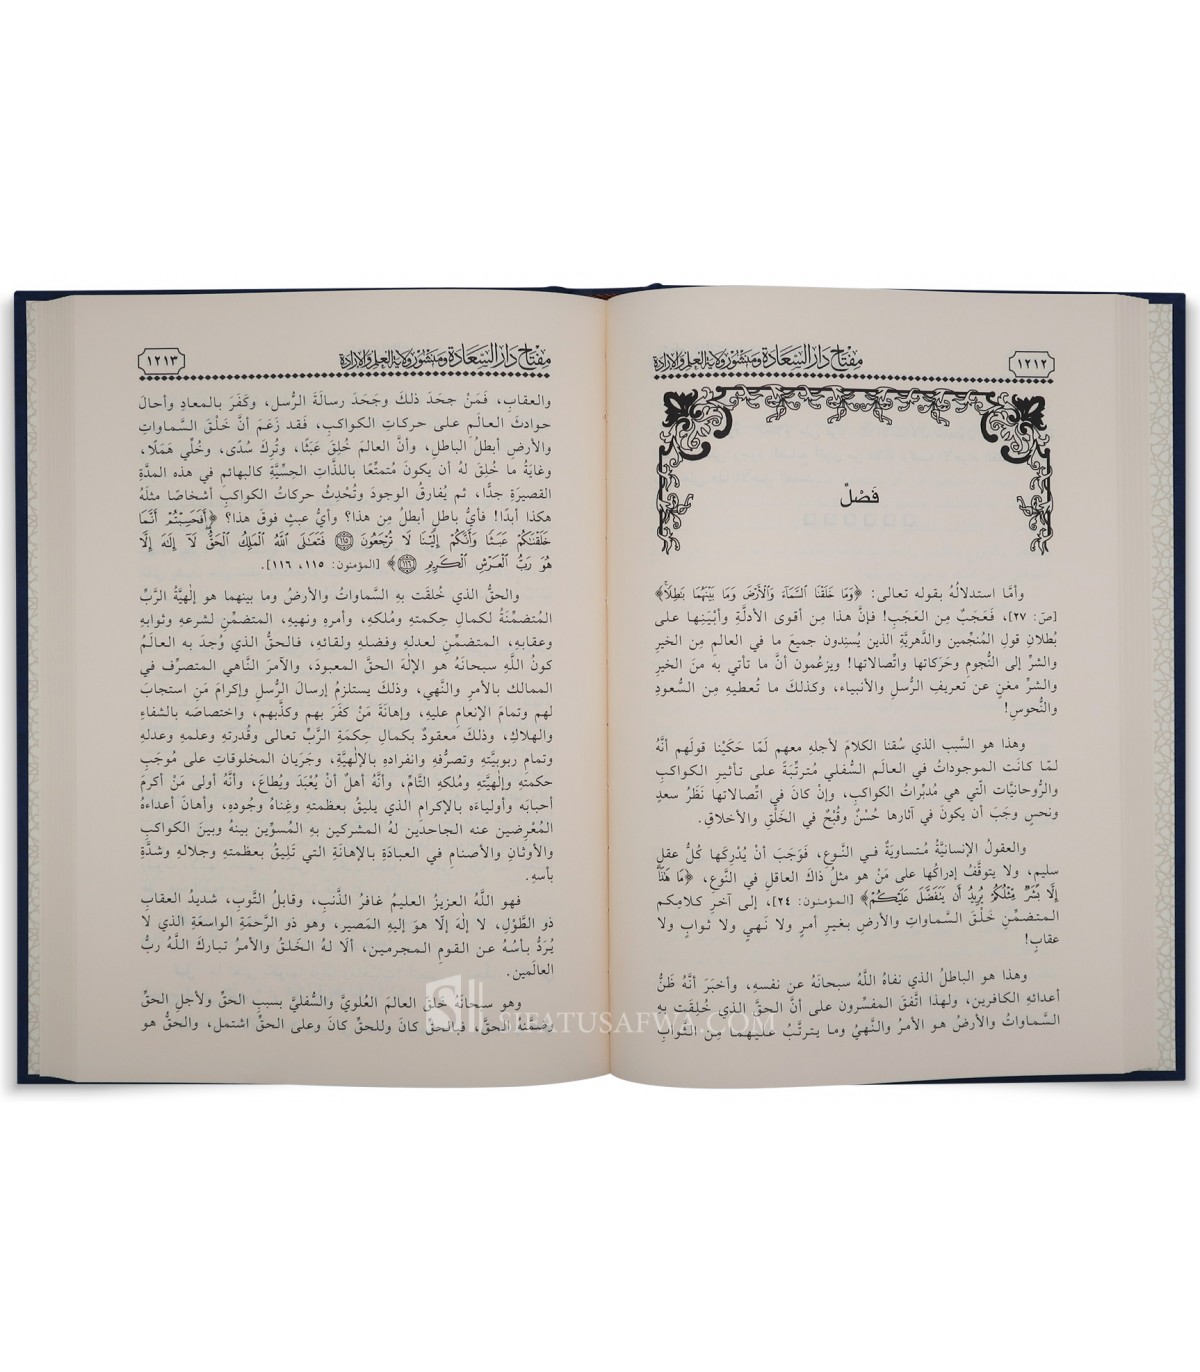 مفتاح دار السعادة ومنشور ولاية العلم والإرادة
١٢١٢
فَصْلٌ
وأمَّا استدلالُهُ بقوله تعالى: ﴿وَمَا خَلَقْنَا ٱلسَّمَآءَ وَٱلْأَرْضَ وَمَا بَيْنَهُمَا بَٰطِلًا﴾
[صَ: ٢٧]، فَعَجَبٌ مِن العَجَبِ! فإنَّ هذا مِن أقوى الأدلَّةِ وأبْيَنِـها علـى
بُطلانِ قولِ المُنجِّمين والدَّهريَّةِ الذين يُسنِدون جميعَ ما في العالمِ مِن الخيرِ
والشرِّ إلى النُّجومِ وحَرَكاتها واتِّصالاتها! ويزعُمون أنَّ ما تأتي به منَ الخيرِ
والشرِّ مغنٍ عن تعريفِ الرُّسلِ والأنبياء، وكذلكَ ما تُعطيهِ مِـن السُّعودِ
والنُّحوسِ!
وهذا هو السَّبب الذي سُقنا الكلامَ لأجلهِ معهم لَمَّا حَكَيْنا قولَهم أنَّهُ
لمّا كانَت الموجوداتُ في العالَمِ السُّفلي مُترتِّبَةً علـى تـأثيرِ الكـواكبِ
والرُّوحانيَّات الَّتي هي مُدبِّراتُ الكواكبِ، وإنْ كانَ في اتِّصالاتها نَظَرُ سعدٍ
ونحسٍ وجَبَ أن يكونَ في آثارها حُسْنٌ وقُبْحٌ في الخَلْقِ والأخلاقِ.
والعقولُ الإنسانيَّةُ مُـتساويَةٌ فـي النَّـوعِ، فَوَجَبَ أنْ يُدْرِكَها كُلُّ عقلٍ
سليمٍ، ولا يتوقَّفُ إدراكُها على مَنْ هو مثلُ ذاكَ العاقلِ في النَّوعِ، ﴿مَا هَٰذَآ
إِلَّا بَشَرٌ مِّثْلُكُمْ يُرِيدُ أَن يَتَفَضَّلَ عَلَيْكُمْ﴾ [المؤمنون: ٢٤]، إلى آخرِ كلامِكم
المتضمِّنِ خَلْقَ السَّماواتِ والأرضِ بغيرِ أمرٍ ولا نَهيٍ ولا ثوابٍ ولا
عقابٍ!
وهذا هو الباطلُ الذي نفاهُ اللَّهُ سبحانَهُ عن نفسهِ، وأخبَرَ أنَّهُ ظَنُّ
أعدائهِ الكافرين، ولهذا اتَّفقَ المفسِّرون على أنَّ الحقَّ الذي خُلِقَت بهِ
السَّماواتُ والأرضُ هو الأمرُ والنَّهيُ وما يترتَّبُ عليهما مِنَ الثَّوابِ
مفتاح دار السعادة ومنشور ولاية العلم والإرادة
١٢١٣
والعقابِ، فَمَنْ جحَدَ ذلكَ وجَحَدَ رسالةَ الرُّسل، وكَفَرَ بالمعادِ وأحالَ
حوادثَ العالَمِ على حركاتِ الكواكبِ، فقد زَعَمَ أنَّ خَلْقَ السَّماواتِ
والأرضِ أبطلُ الباطلِ، وأنَّ العالمَ خُلِقَ عَبَثًا، وتُرِكَ سُدًى، وخُلِّي هَمَلًا،
وغايَةُ ما خُلِقَ لهُ أن يكونَ مُتمتِّعًا باللذَّاتِ الحِسيَّةِ كالبهائمِ في هذه المدَّةِ
القصيرَةِ جدًّا، ثم يُفارقُ الوجودَ وتُحْدِثُ حركاتُ الكواكبِ أشخاصًا مثلَهُ
هكذا أبدًا! فأيُّ باطلٍ أبطلُ مِن هذا؟ وأيُّ عبثٍ فوقَ هذا؟ ﴿أَفَحَسِبْتُمْ أَنَّمَا
خَلَقْنَٰكُمْ عَبَثًا وَأَنَّكُمْ إِلَيْنَا لَا تُرْجَعُونَ ١١٥ فَتَعَٰلَى ٱللَّهُ ٱلْمَلِكُ ٱلْحَقُّ لَآ إِلَٰهَ إِلَّا
هُوَ رَبُّ ٱلْعَرْشِ ٱلْكَرِيمِ ١١٦﴾ [المؤمنون: ١١٥، ١١٦].
والحقُّ الذي خُلقَت بهِ السَّماواتُ والأرضُ وما بينهما هو إلٰهيَّةُ الرَّبِّ
المُتضمِّنَةُ لكمالِ حِكمتهِ ومُلكهِ، وأمرهِ ونهيهِ، المتضمِّنِ لشرعهِ وثوابهِ
وعقابهِ، المتضمِّـنِ لعدلهِ وفضلهِ ولقائهِ، فالحقُّ الذي وُجدَ به العالَمُ
كونُ اللَّهِ سبحانَهُ هو الإلٰهَ الحقَّ المعبودَ، والآمرَ النَّاهي المتصرِّف في
الممالك بالأمرِ والنَّهي، وذلكَ يستلزمُ إرسالَ الرُّسلِ وإكرامَ مَنِ استجابَ
لهم وتمامَ الإنعامِ عليهِ، وإهانَةَ مَنْ كفَرَ بهم وكذَّبهم، واختصاصَه بالشقاءِ
والهلاكِ، وذلكَ معقودٌ بكمالِ حِكمَةِ الرَّبِّ تعالى وقُدرتهِ وعلمهِ وعدلهِ
وتمامِ ربوبيَّتهِ وتصرُّفهِ وانفرادهِ بالإلٰهيَّةِ، وجَرَيان المخلوقات على مُوجَبِ
حكمتهِ وإلٰهيَّتهِ ومُلكهِ التَّامِّ، وأنَّهُ أهلٌ أنْ يُعْبَدَ ويُطاعَ، وأنَّهُ أولى مَنْ أكرمَ
أحبابَه وأولياءَه بالإكرامِ الذي يليقُ بعظمتهِ وغِناهُ وجُودِهِ، وأهانَ أعداءهُ
المُعْرِضين عنه الجاحدين لهُ المشركين بهِ المُسوِّين بينهُ وبينَ الكواكبِ
والأوثانِ والأصنامِ في العبادَةِ بالإهانَةِ التي تَلِيقُ بعظمتهِ وجلالهِ وشدَّةِ
بأسهِ.
فهو اللَّهُ العزيزُ العليمُ غافرُ الذَّنبِ، وقابلُ التَّوبِ، شديدُ العقابِ
ذو الطَّوْلِ، لا إلٰهَ إلّا هوَ إليهِ المَصير، وهو ذو الرَّحمَةِ الواسعَةِ الذي لا
يُرَدُّ بأسُهُ عـن القومِ المجرمين، ألَا لهُ الخَلقُ والأمرُ تبـاركَ اللَّـهُ ربُّ
العالَمين.
وهو سبحانَهُ خَلَقَ العالمَ العُلويَّ والسُّفليَّ بسببِ الحقِّ ولأجلِ الحقِّ
وضمَّنَهُ الحقَّ، فبالحقِّ كانَ وللحقِّ كانَ وعلى الحقِّ اشتملَ، والحقُّ هو
SIFATUSAFWA.COM